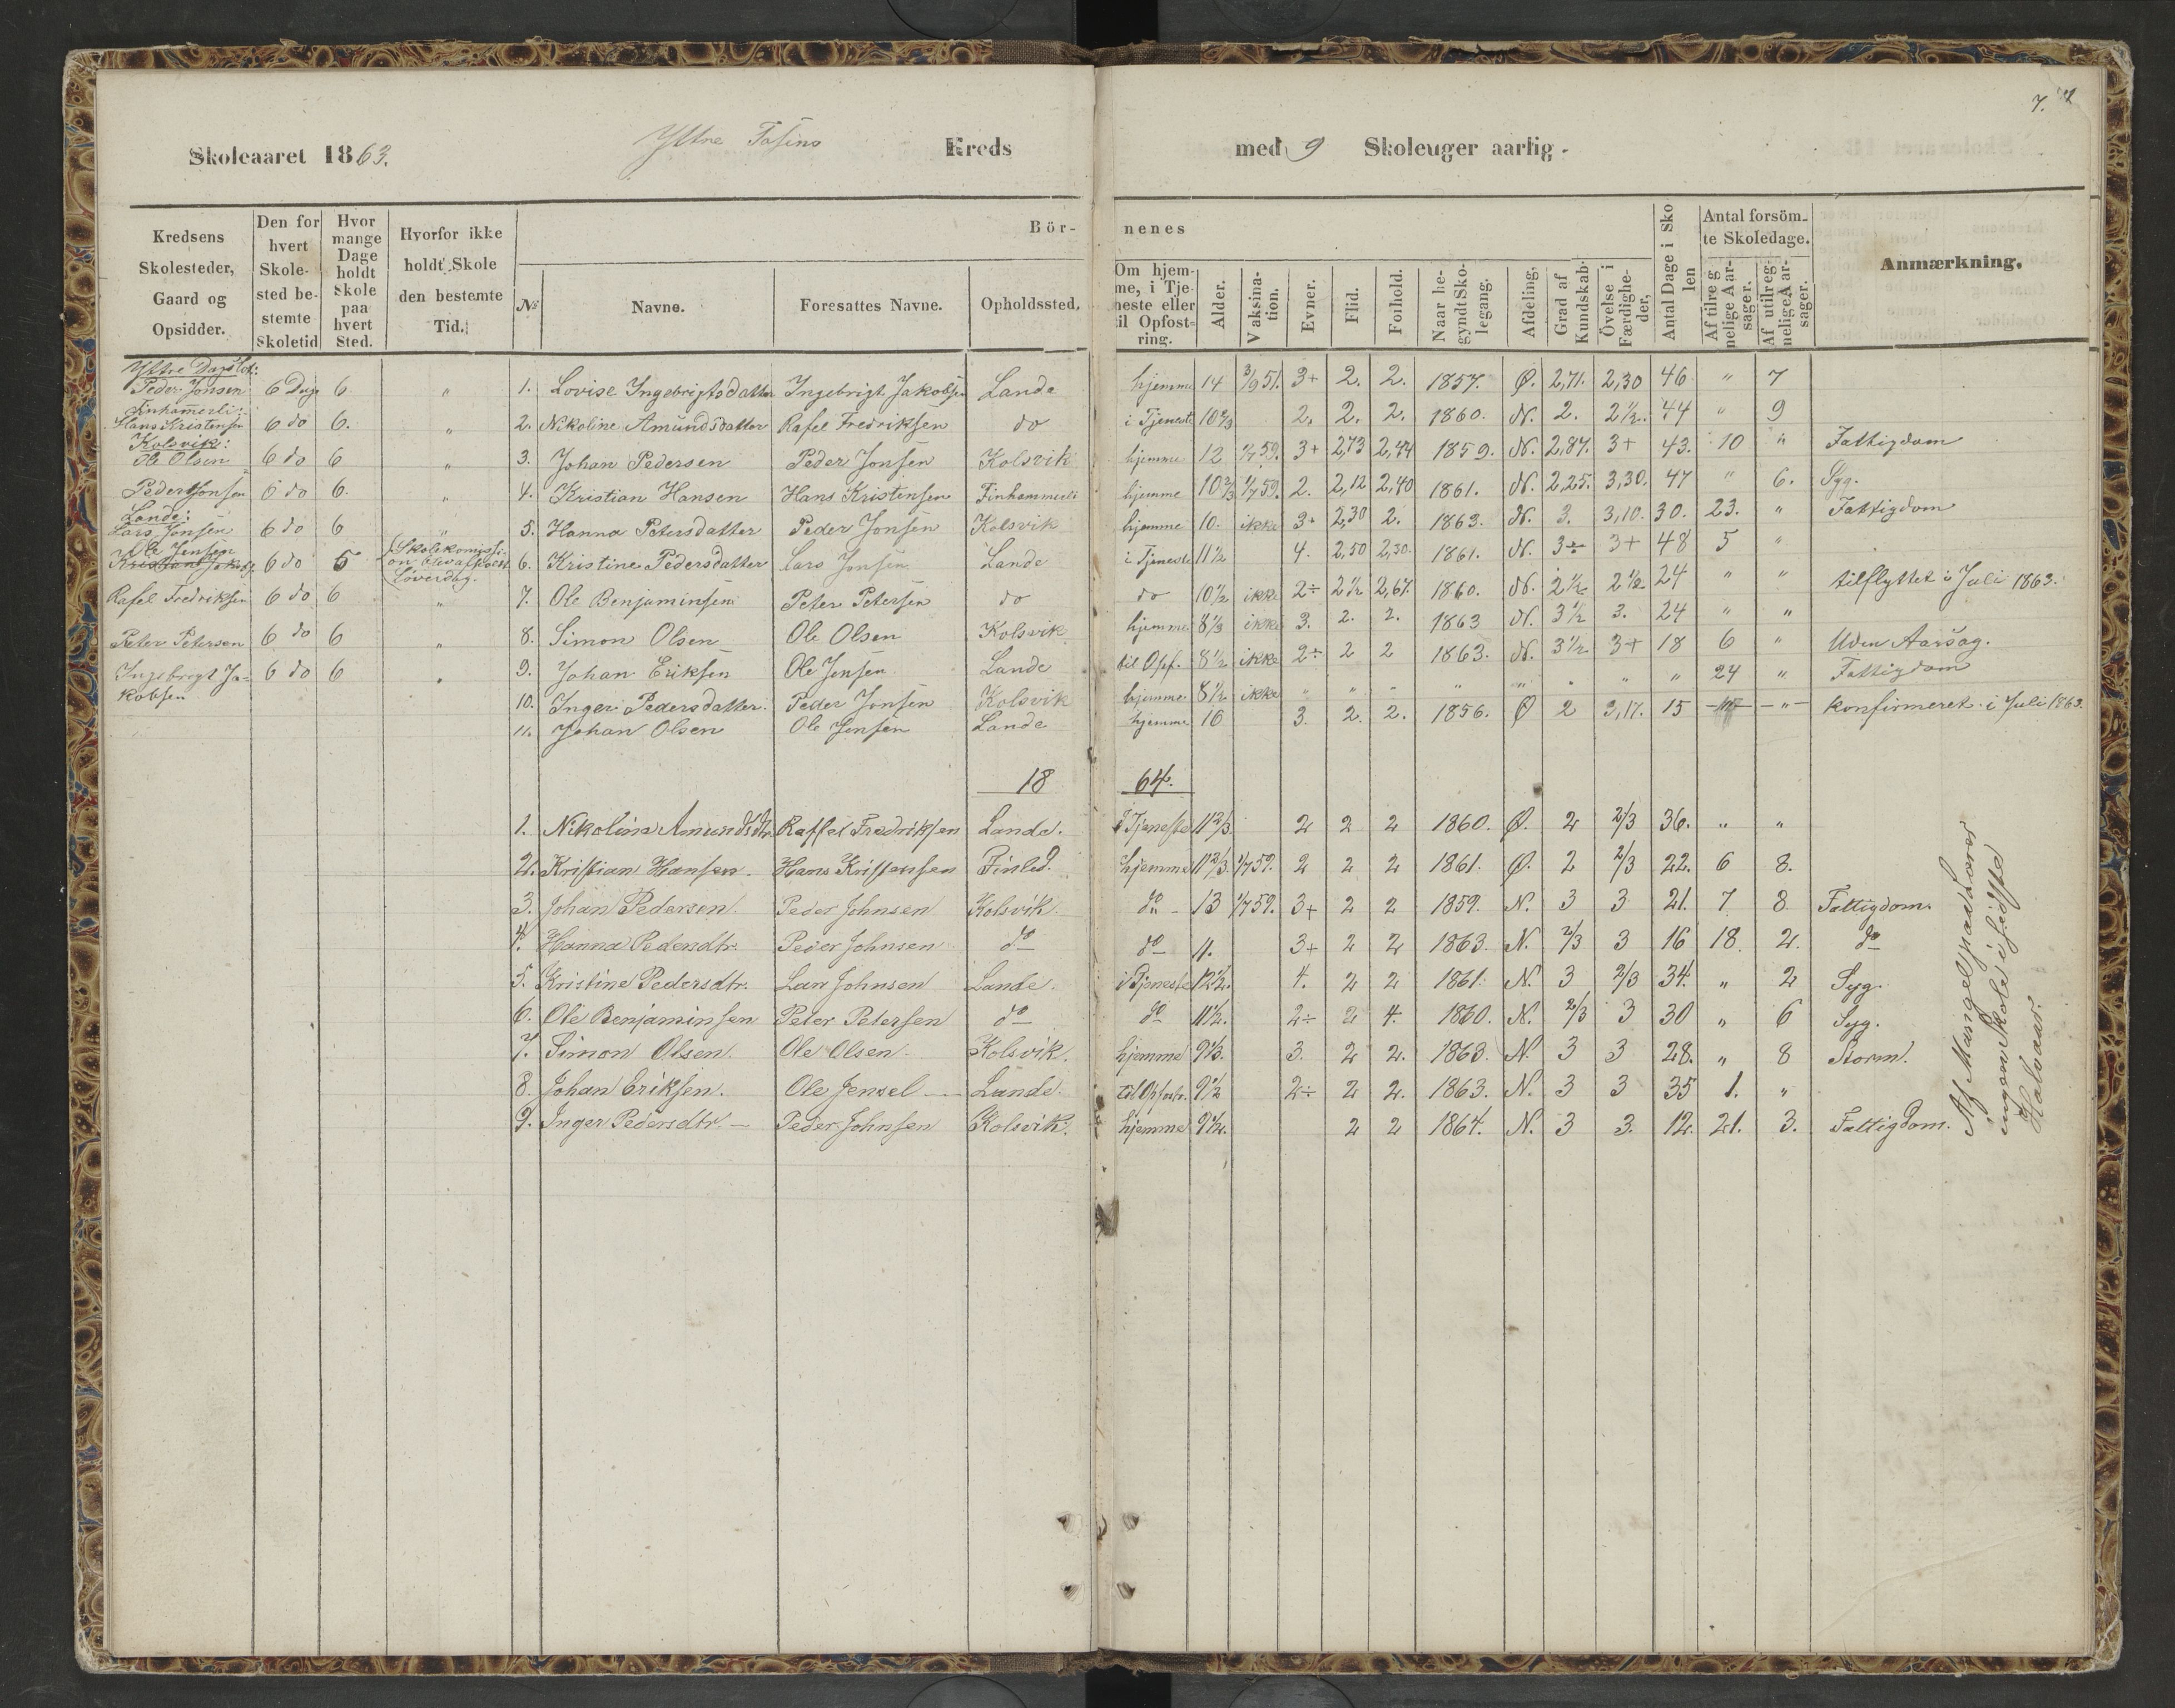 7.
Skoleaaret 1863. Yttre Tosins Kreds med 9 Skoleuger aarlig.
Kredsens Skolesteder, Gaard og Opsidder. | Den for hvert Skolested bestemte Skoletid | Hvor mange Dage holdt Skole paa hvert Sted. | Hvorfor ikke holdt Skole den bestemte Tid. | Bör- nenes
№ | Navne. | Foresattes Navne. | Opholdssted. | Om hjemme, i Tjeneste eller til Opfostring. | Alder. | Vaksination. | Evner. | Flid. | Forhold. | Naar begyndt Skolegang. | Afdeling. | Grad af Kundskab. | Övelse i Færdigheder, | Antal Dage i Skolen | Antal forsömte Skoledage. | Af tilregnelige Aarsager. | Af utilregnelige Aarsager. | Anmærkning.
Peder Jonsen 6 Dage 6 "
Finhammerli:
Hans Kristensen 6 do 6. "
Kolsvik:
Ole Olsen 6 do 6 "
Peder Jonsen 6 do 6. "
Lande:
Lars Jonsen 6 do 6 "
Ole Jensen
6 do 5
Löverdag.
Rafel Fredriksen 6 do 6 "
Peter Petersen 6 do 6 "
Ingebrigt Ja- 6 do 6 "
kobsen
1. Lovise Ingebrigtsdatter Ingebrigt Jakobsen Lande hjemme 14 3/9 51. 3+ 2. 2. 1857. Ø. 2,71. 2,30 46 " 7
2. Nikoline Amundsdatter Rafel Fredriksen do i Tjeneste 10 2/3 2. 2. 2. 1860. N. 2. 2 1/2. 44 " 9
3. Johan Pedersen Peder Jonsen Kolsvik hjemme 12 1/7 59. 3+ 2,73 2,44 1859. N. 2,87. 3+ 43. 10 " Fattigdom
4. Kristian Hansen Hans Kristensen Finhammerli hjemme 10 2/3 1/7 59. 2. 2,12 2,40 1861. N. 2,25. 3,30. 47 " 6. Syg.
5. Hanna Petersdatter Peder Jonsen Kolsvik hjemme 10. ikke 3+ 2,30 2. 1863. N. 3. 3,10. 30. 23. " Fattigdom
6. Kristine Pedersdatter Lars Jonsen Lande i Tjeneste 11 1/2 4. 2,50 2,30. 1861. N. 3÷ 3+ 48 5 "
7. Ole Benjaminsen Peter Petersen do do 10 1/2 ikke 2÷ 2 1/2 2,67. 1860. N. 2 1/2 2 1/2 24 " " tilflyttet i Juli 1863.
8. Simon Olsen Ole Olsen Kolsvik hjemme 8 1/3 ikke 3. 2. 2. 1863 N. 3 1/2 3. 24 " "
9. Johan Eriksen Ole Jensen Lande til Opf. 8 1/2 ikke 2÷ 2 2 1863. N. 3 1/2 3+ 18 6 " Uden Aarsag.
10. Inger Pedersdatter. Peder Jonsen Kolsvik hjemme 8 1/2 ikke " " " " " " " " 24 " Fattigdom
11. Johan Olsen Ole Jensen Lande hjemme 16 3. 2. 2. 1856. Ø 2 3,17. 15 " konfirmeret i Juli 1863.
18 64.
1. Nikolina Amundsdtr. Raffel Fredriksen Lande. i Tjeneste 11 2/3 2 2 2 1860. Ø. 2 2/3 36. " "
2. Kristian Hansen. Hans Kristensen hjemme 11 2/3 1/7 59. 2 2 2 1861. Ø. 2 2/3 22. 6 8.
3. Johan Pedersen. Peder Johnsen Kolsvik. do 13 1/7 59. 3+ 2 2 1859. N. 3 3 21. 7 8 Fattigdom.
4. Hanna Pedersdtr. Peder Johnsen do do 11. 3+ 2 2 1863. N. 2/3 3 16 18. 2. do
5. Kristine Pedersdtr. Lars Johnsen Lande. i Tjeneste 12 1/2. 4. 2 2 1861. N. 3 2/3 34. " 2 Syg.
6. Ole Benjaminsen Peter Petersen do do 11 1/2. 2÷ 2 4. 1860. N. 2/3 3 30 " 6 Syg.
7. Simon Olsen. Ole Olsen Kolsvik. hjemme 9 1/3. 3. 2 2. 1863. N. 3 3 28. " 8 Storm.
8. Johan Eriksen. Ole Jensel Lande. til Opfostr. 9 1/2 2÷ 2 2. 1863. N. 3 3 35 1. "
9. Inger Pedersdtr. Peder Johnsen Kolsvik. hjemme 9 1/2. 2 2 1864. N. 3 3. 12. 21. 3. Fattigdom.
Af Mangel paa Lærer
ingen Skole i sidste
Halvaar.